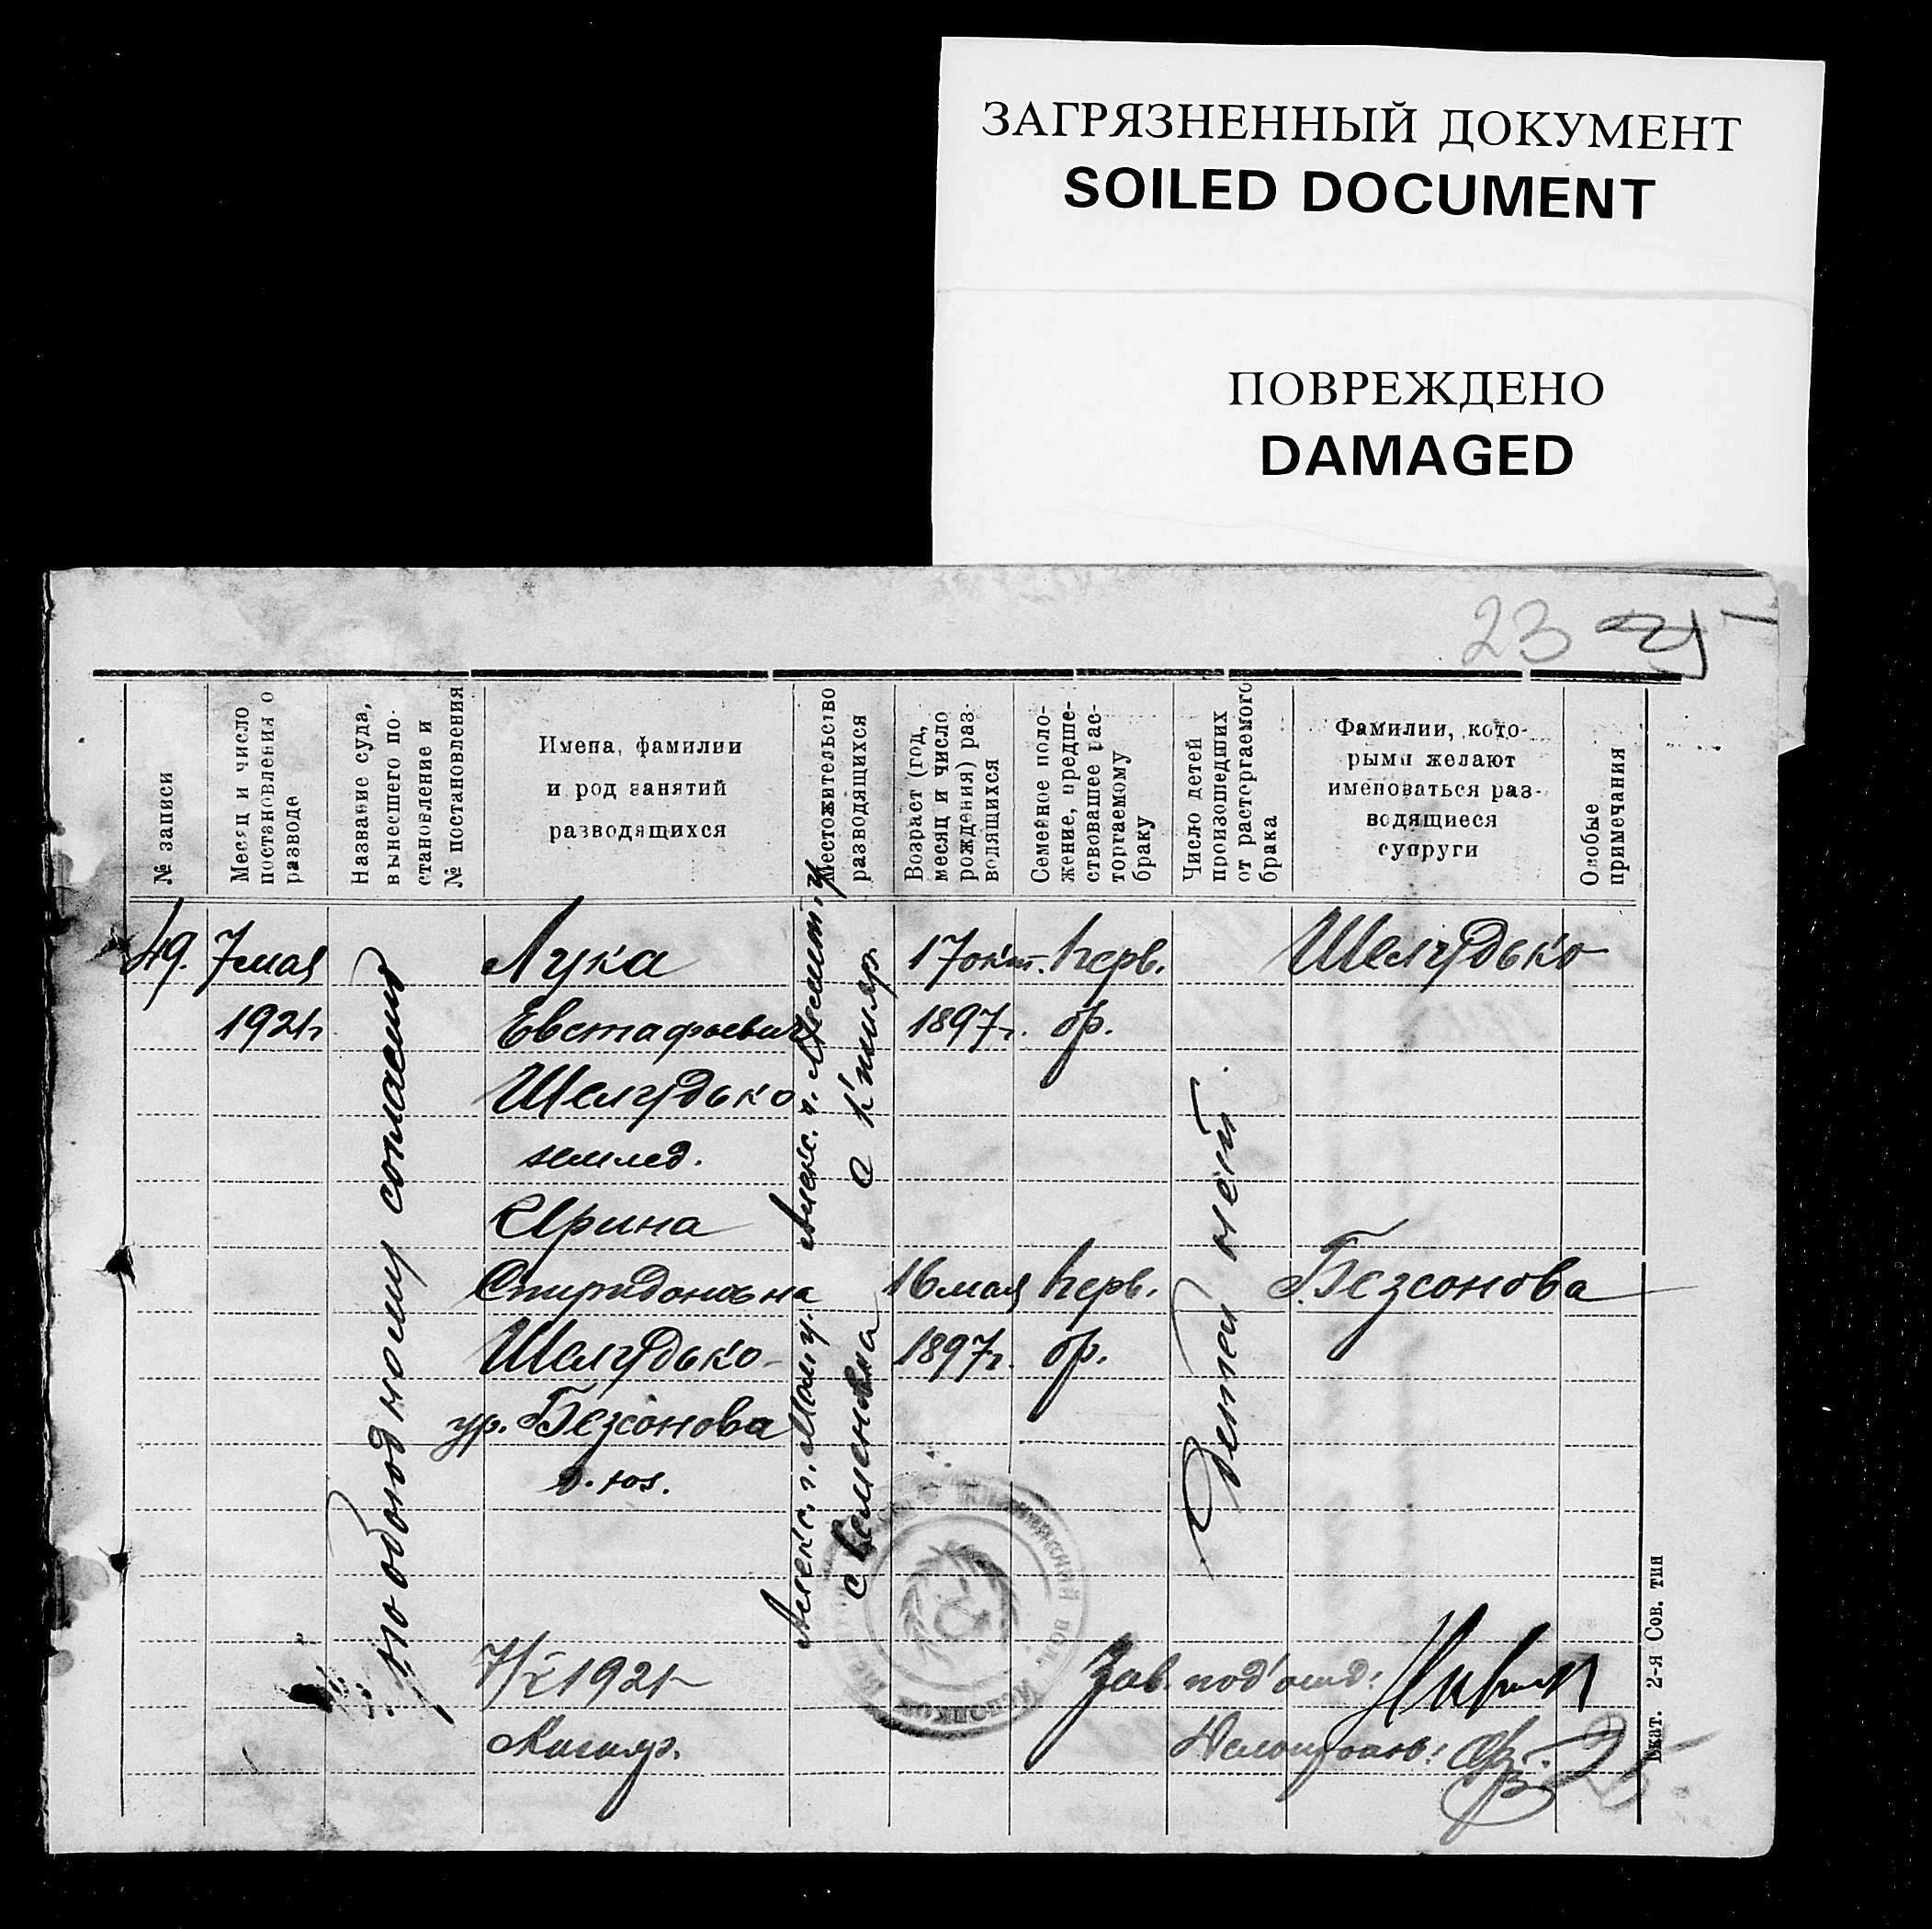 ЗАГРЯЗНЕННЫЙ ДОКУМЕНТ
SOILED DOCUMENT
ПОВРЕЖДЕНО
DAMAGED
23
№ записи
Месяц и число
постановления о
разводе
Название суда,
вынесшего по-
становление и
№ постановления
Имена, фамилии
и род занятий
разводящихся
Местожительство
разводящихся
Возраст (год,
месяц и число
рождения) раз-
водящихся
Семейное поло-
жение, предше-
ствовавшее рас-
торгаемому
браку
Число детей
происшедших
от расторгаемого
брака
Фамилии, кото-
рыми желают
именоваться раз-
водящиеся
супруги
Особые
примечания
49.
7 мая
1921 г
По обоюдному согласию
Лука
Евстафьевич
Шелудько
землед.
Ирина
Спиридоновна
Шелудько
ур. Безсонова
д. хоз.
Алекс. г.
Алекс. г.
17 окт.
1897 г.
16 мая
1897 г.
перв.
бр.
перв.
бр.
Детей нет.
Шелудько
Безсонова
7/V 1921 г
Зав. под'отд:
Делопроизв:
25
Екат. 2-я Сов. тип